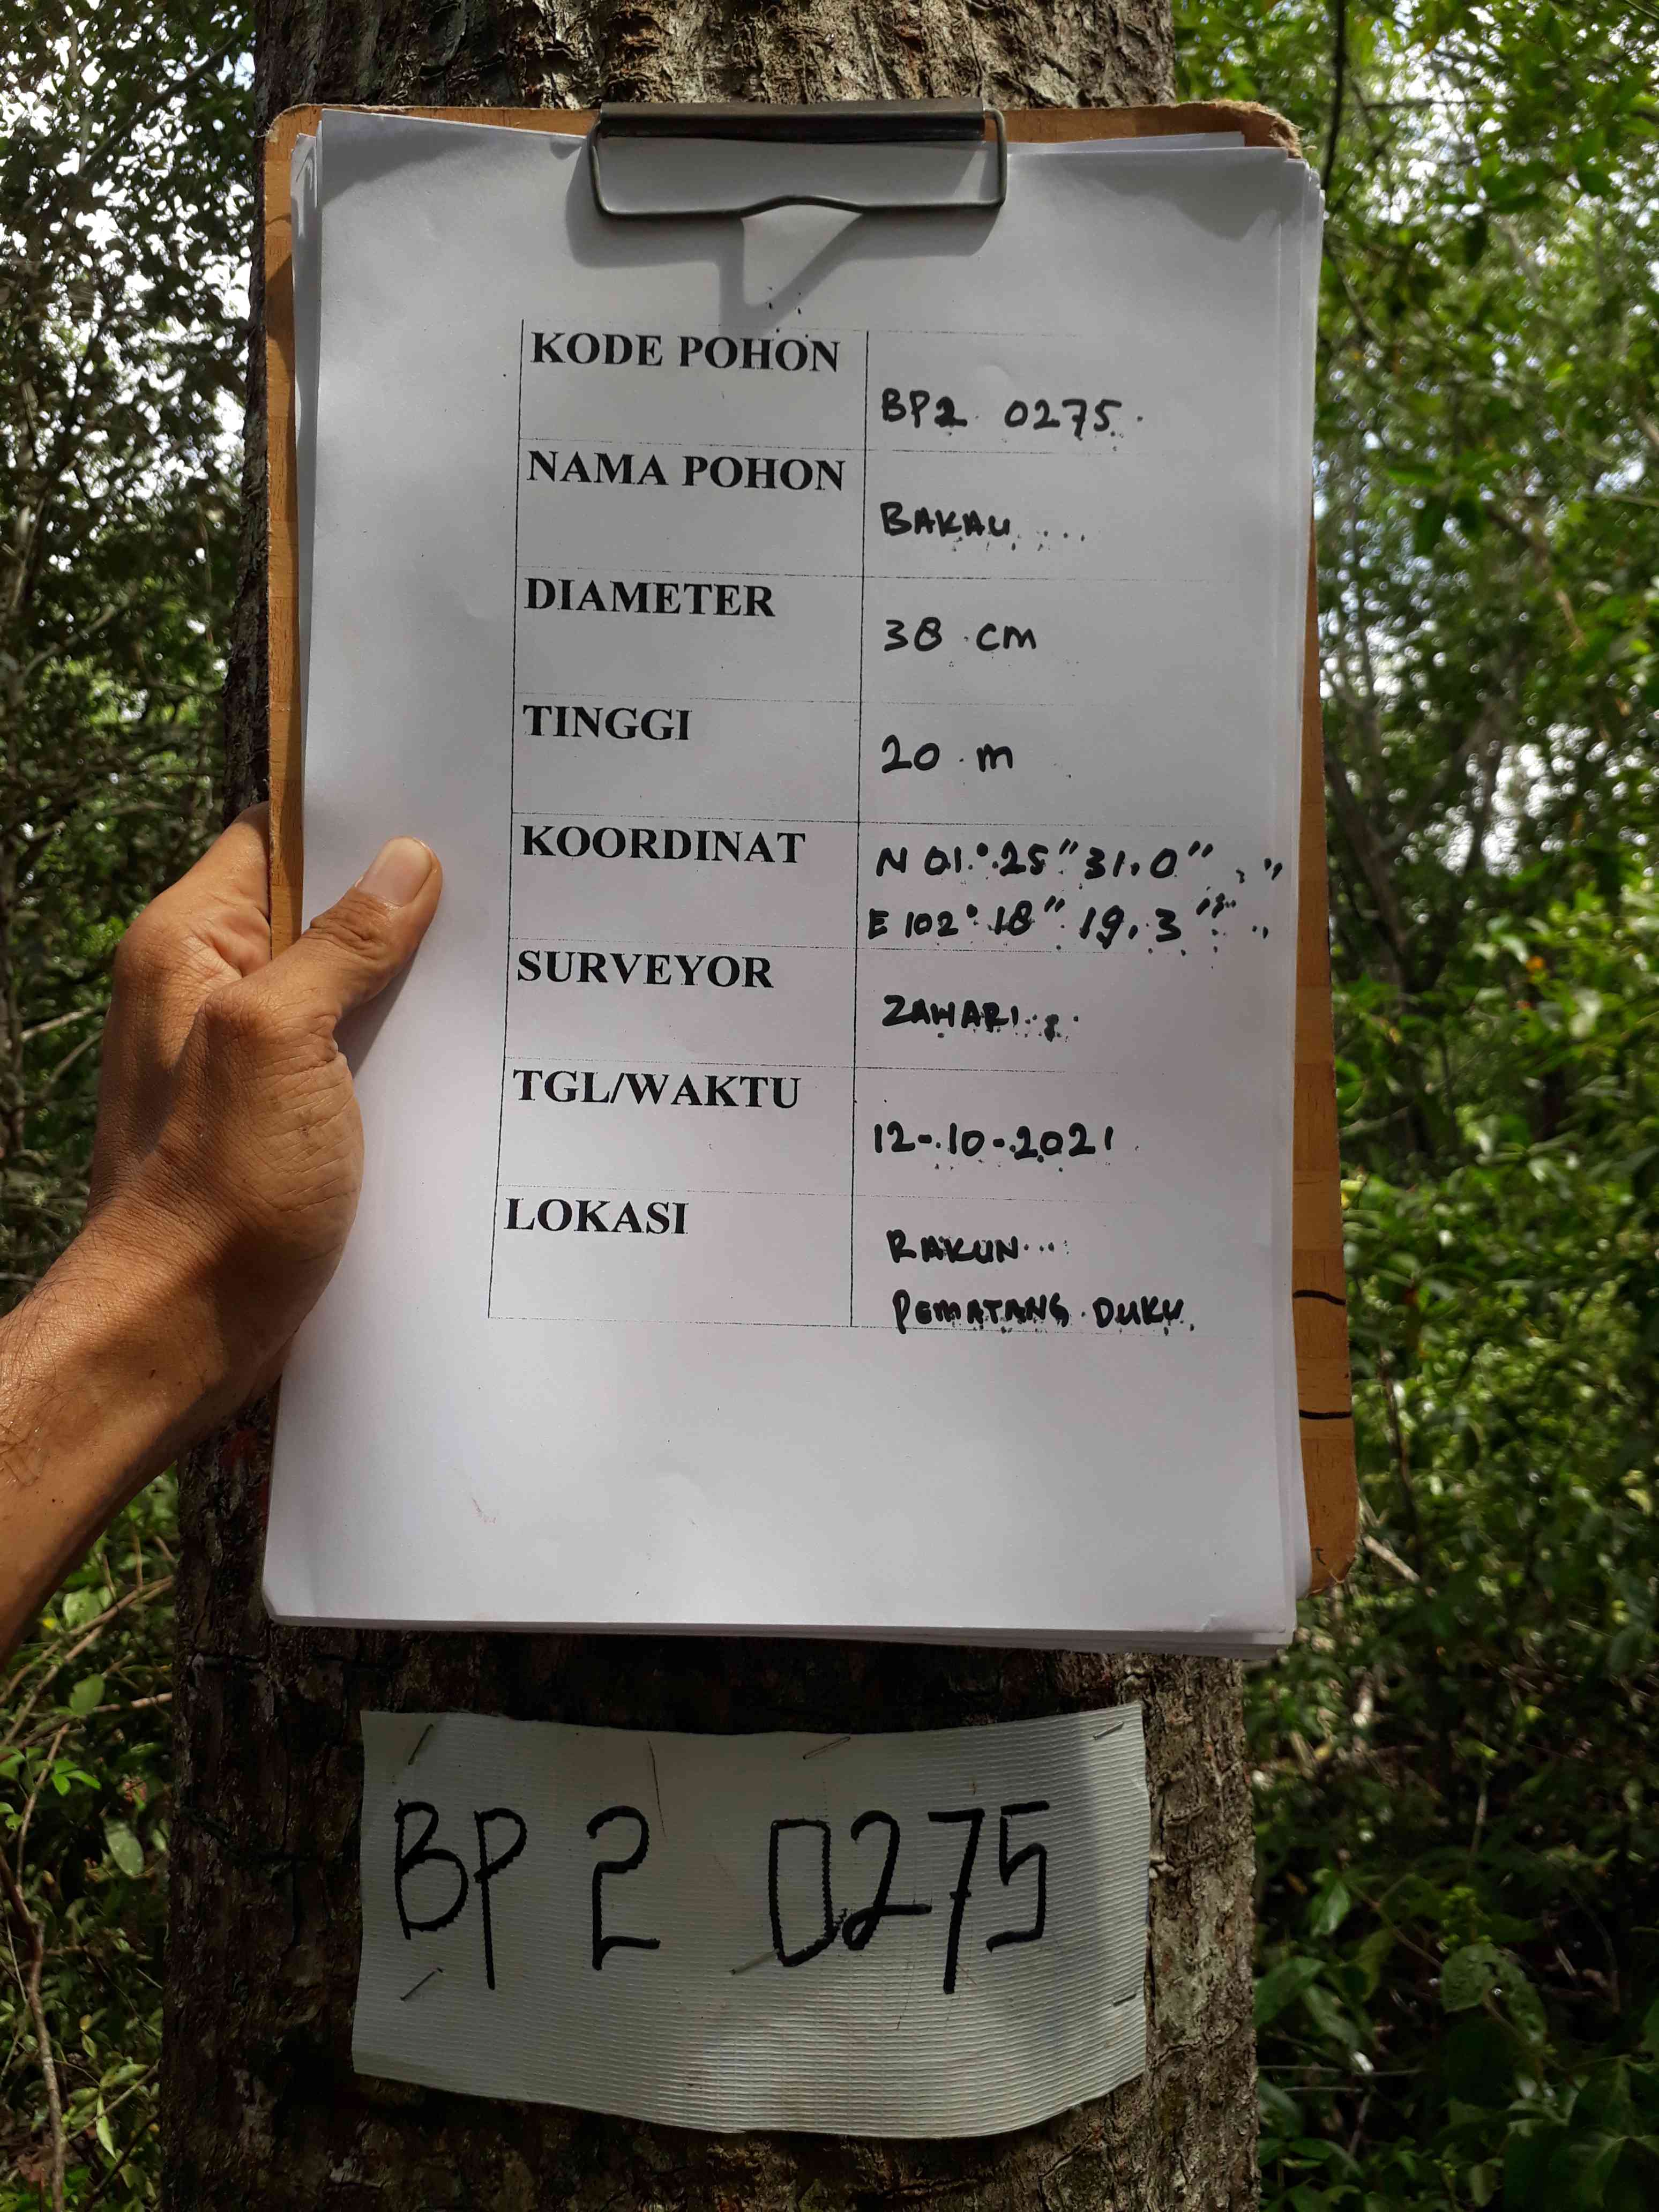 KODE POHON
BP2 0275
NAMA POHON
BAKAU
DIAMETER
38 cm
TINGGI
20 m
KOORDINAT
N 01° 25" 31.0"
E 102° 18" 19.3"
SURVEYOR
ZAWARI
TGL/WAKTU
12-10-2021
LOKASI
RAKUN
PEMATANG DUKU
BP 2 0275